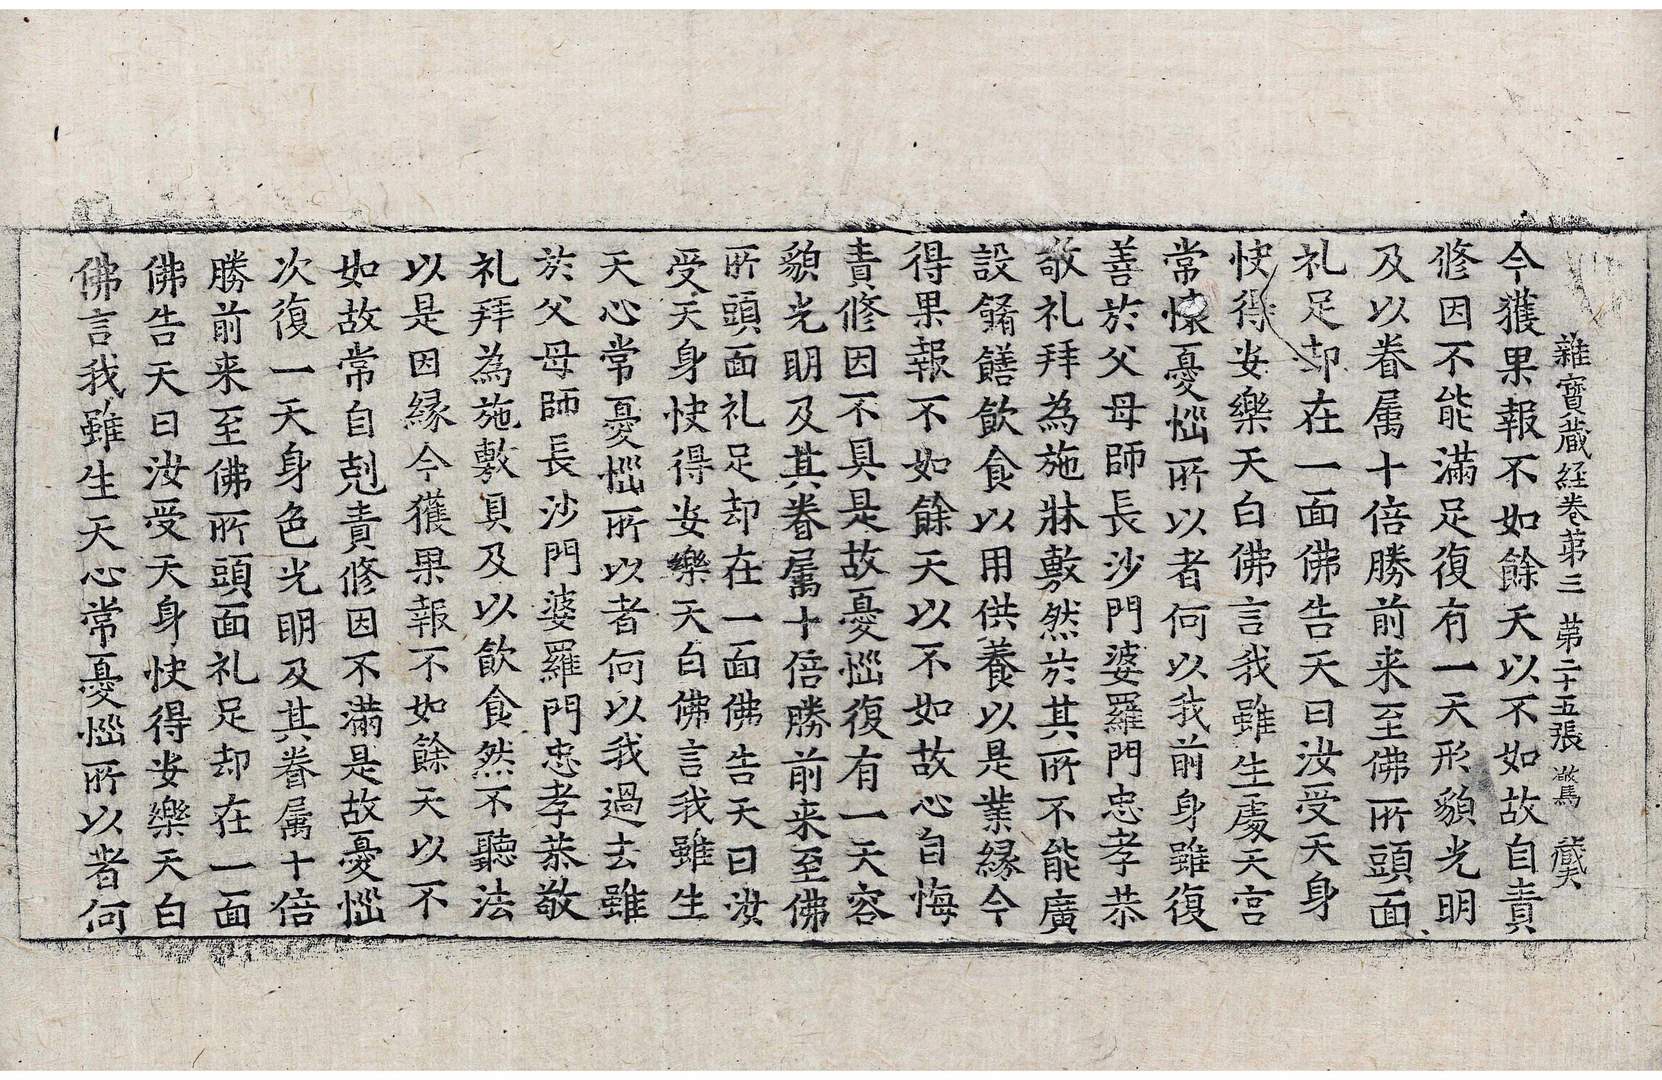 雜寳蔵経巻第三 第二十五張 驚 蔵大
今獲果報不如餘天以不如故自責
修因不能滿足復有一天形貌光明
及以眷属十倍勝前来至佛所頭面
礼足却在一面佛告天曰汝受天身
快得安樂天白佛言我雖生處天宫
常懐憂惱所以者何以我前身雖復
善於父母師長沙門婆羅門忠孝恭
敬礼拜為施牀敷然於其所不能廣
設餚饍飲食以用供養以是業縁今
得果報不如餘天以不如故心自悔
責修因不具是故憂惱復有一天容
貌光明及其眷属十倍勝前来至佛
所頭面礼足却在一面佛告天曰汝
受天身快得安樂天白佛言我雖生
天心常憂惱所以者何以我過去雖
於父母師長沙門婆羅門忠孝恭敬
礼拜為施敷具及以飲食然不聽法
以是因縁今獲果報不如餘天以不
如故常自剋責修因不滿是故憂惱
次復一天身色光明及其眷属十倍
勝前来至佛所頭面礼足却在一面
佛告天曰汝受天身快得安樂天白
佛言我雖生天心常憂惱所以者何